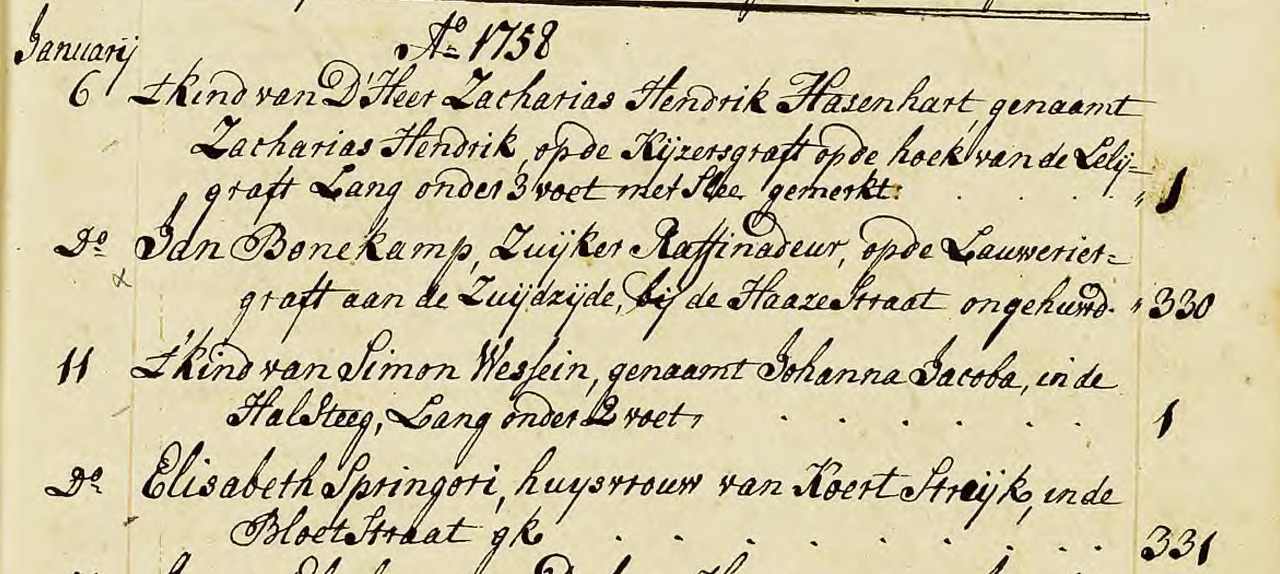 Januarij A° 1758
6 t kind van D'Heer Zacharias Hendrik Hasenhart, genaamt
Zacharias Hendrik, op de Kijzersgraft op de hoek van de Lelij=
graft Lang onder 3 voet met Slee gemerkt: " 1
D° Jan Bonekamp, Zuijker Raffinadeur, op de Lauwerier=
graft aan de Zuijdzijde, bij de Haaze Straat ongehuwd. " 330
11 t' kind van Simon Wessein, genaamt Johanna Jacoba, in de
Hal Steeg, Lang onder 2 voet, 1
D° Elisabeth Springori, huysvrouw van Koert Streijk, in de
Bloet Straat gk 331